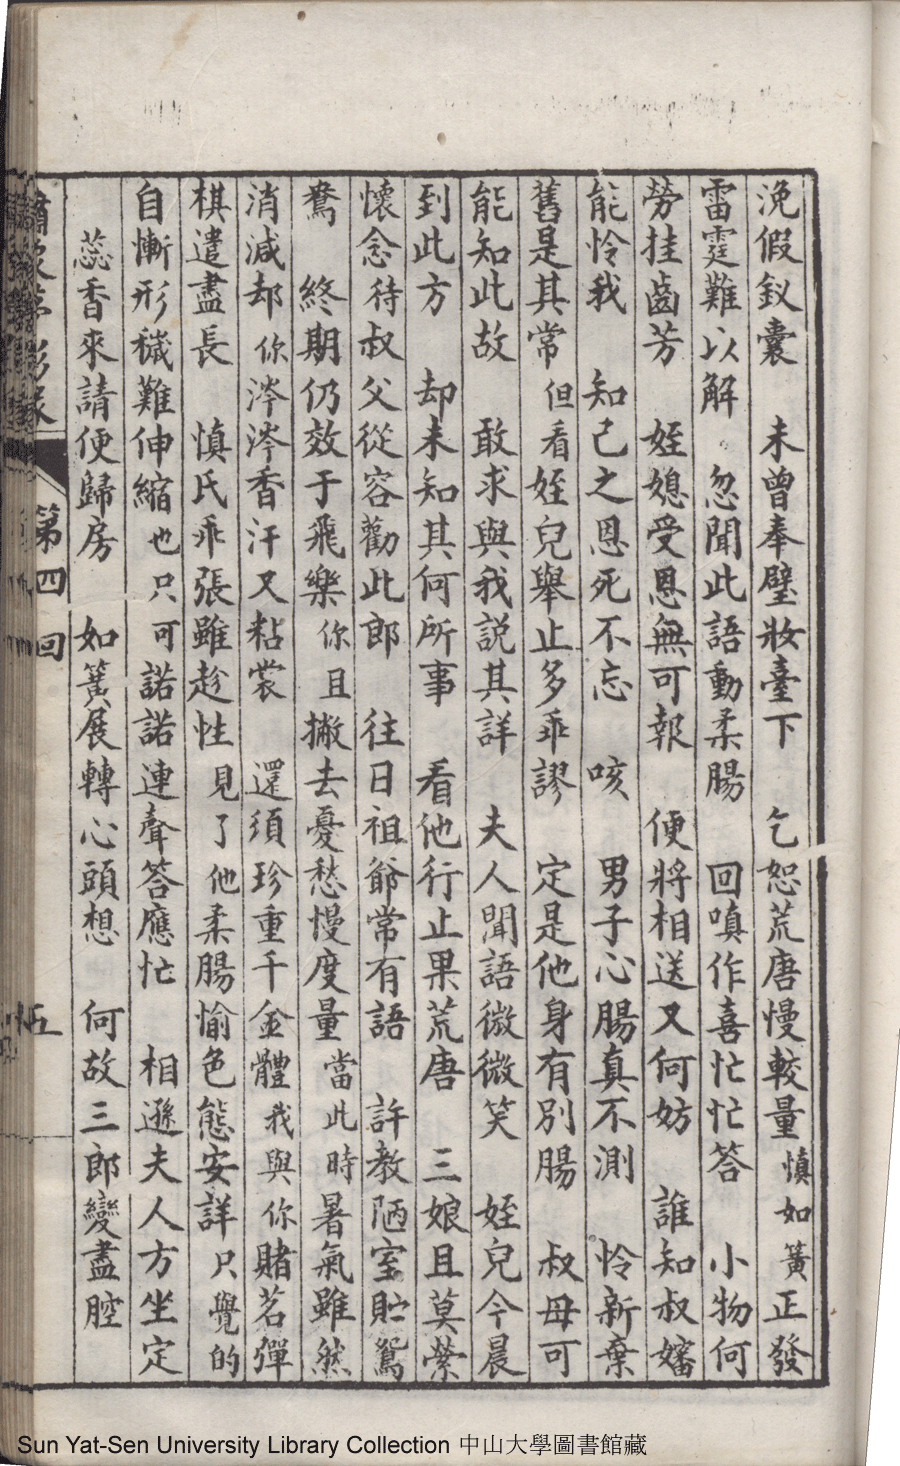 浼假釵囊　未曾奉璧妝臺下　乞恕荒唐慢較量慎如簧正發
雷霆難以解　忽聞此語動柔腸　回嗔作喜忙忙答　小物何
勞挂齒芳　姪媳受恩無可報　便將相送又何妨　誰知叔嬸
能怜我　知己之恩死不忘　咳　男子心腸真不測　怜新棄
舊是其常但看姪兒舉止多乖謬　定是他身有別腸　叔母可
能知此故　敢求與我說其詳　夫人聞語微微笑　姪兒今晨
到此方　却未知其何所事　看他行止果荒唐　三娘且莫縈
懷念待叔父從容勸此郎　往日祖爺常有語　許教陋室貯鴛
鴦　終期仍效于飛樂你且撇去憂愁慢度量當此時暑氣雖然
消減却你涔涔香汗又粘裳　還須珍重千金體我與你賭茗彈
棋遣盡長　慎氏乖張雖趁性見了他柔腸愉色態安詳只覺的
自慚形穢難伸縮也只可諾諾連聲答應忙　相遜夫人方坐定
蕊香來請便歸房　如簧展轉心頭想　何故三郎變盡腔
第四回
五
Sun Yat-Sen University Library Collection 中山大學圖書館藏